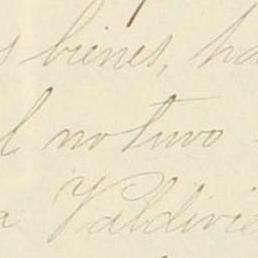 s bienes, ha
l no tuvo
a Valdivie